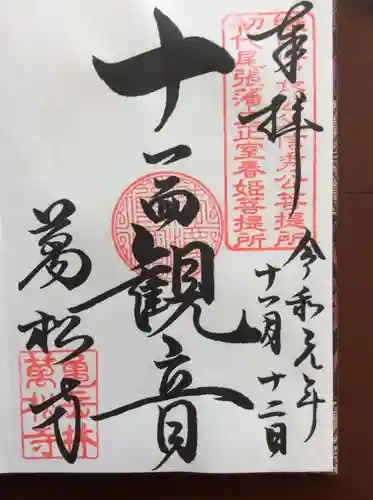 奉拝
初代尾張藩主正室春姫菩提所
令和元年
十一月十二日
十一面観音
萬松寺
亀岳林
萬松寺